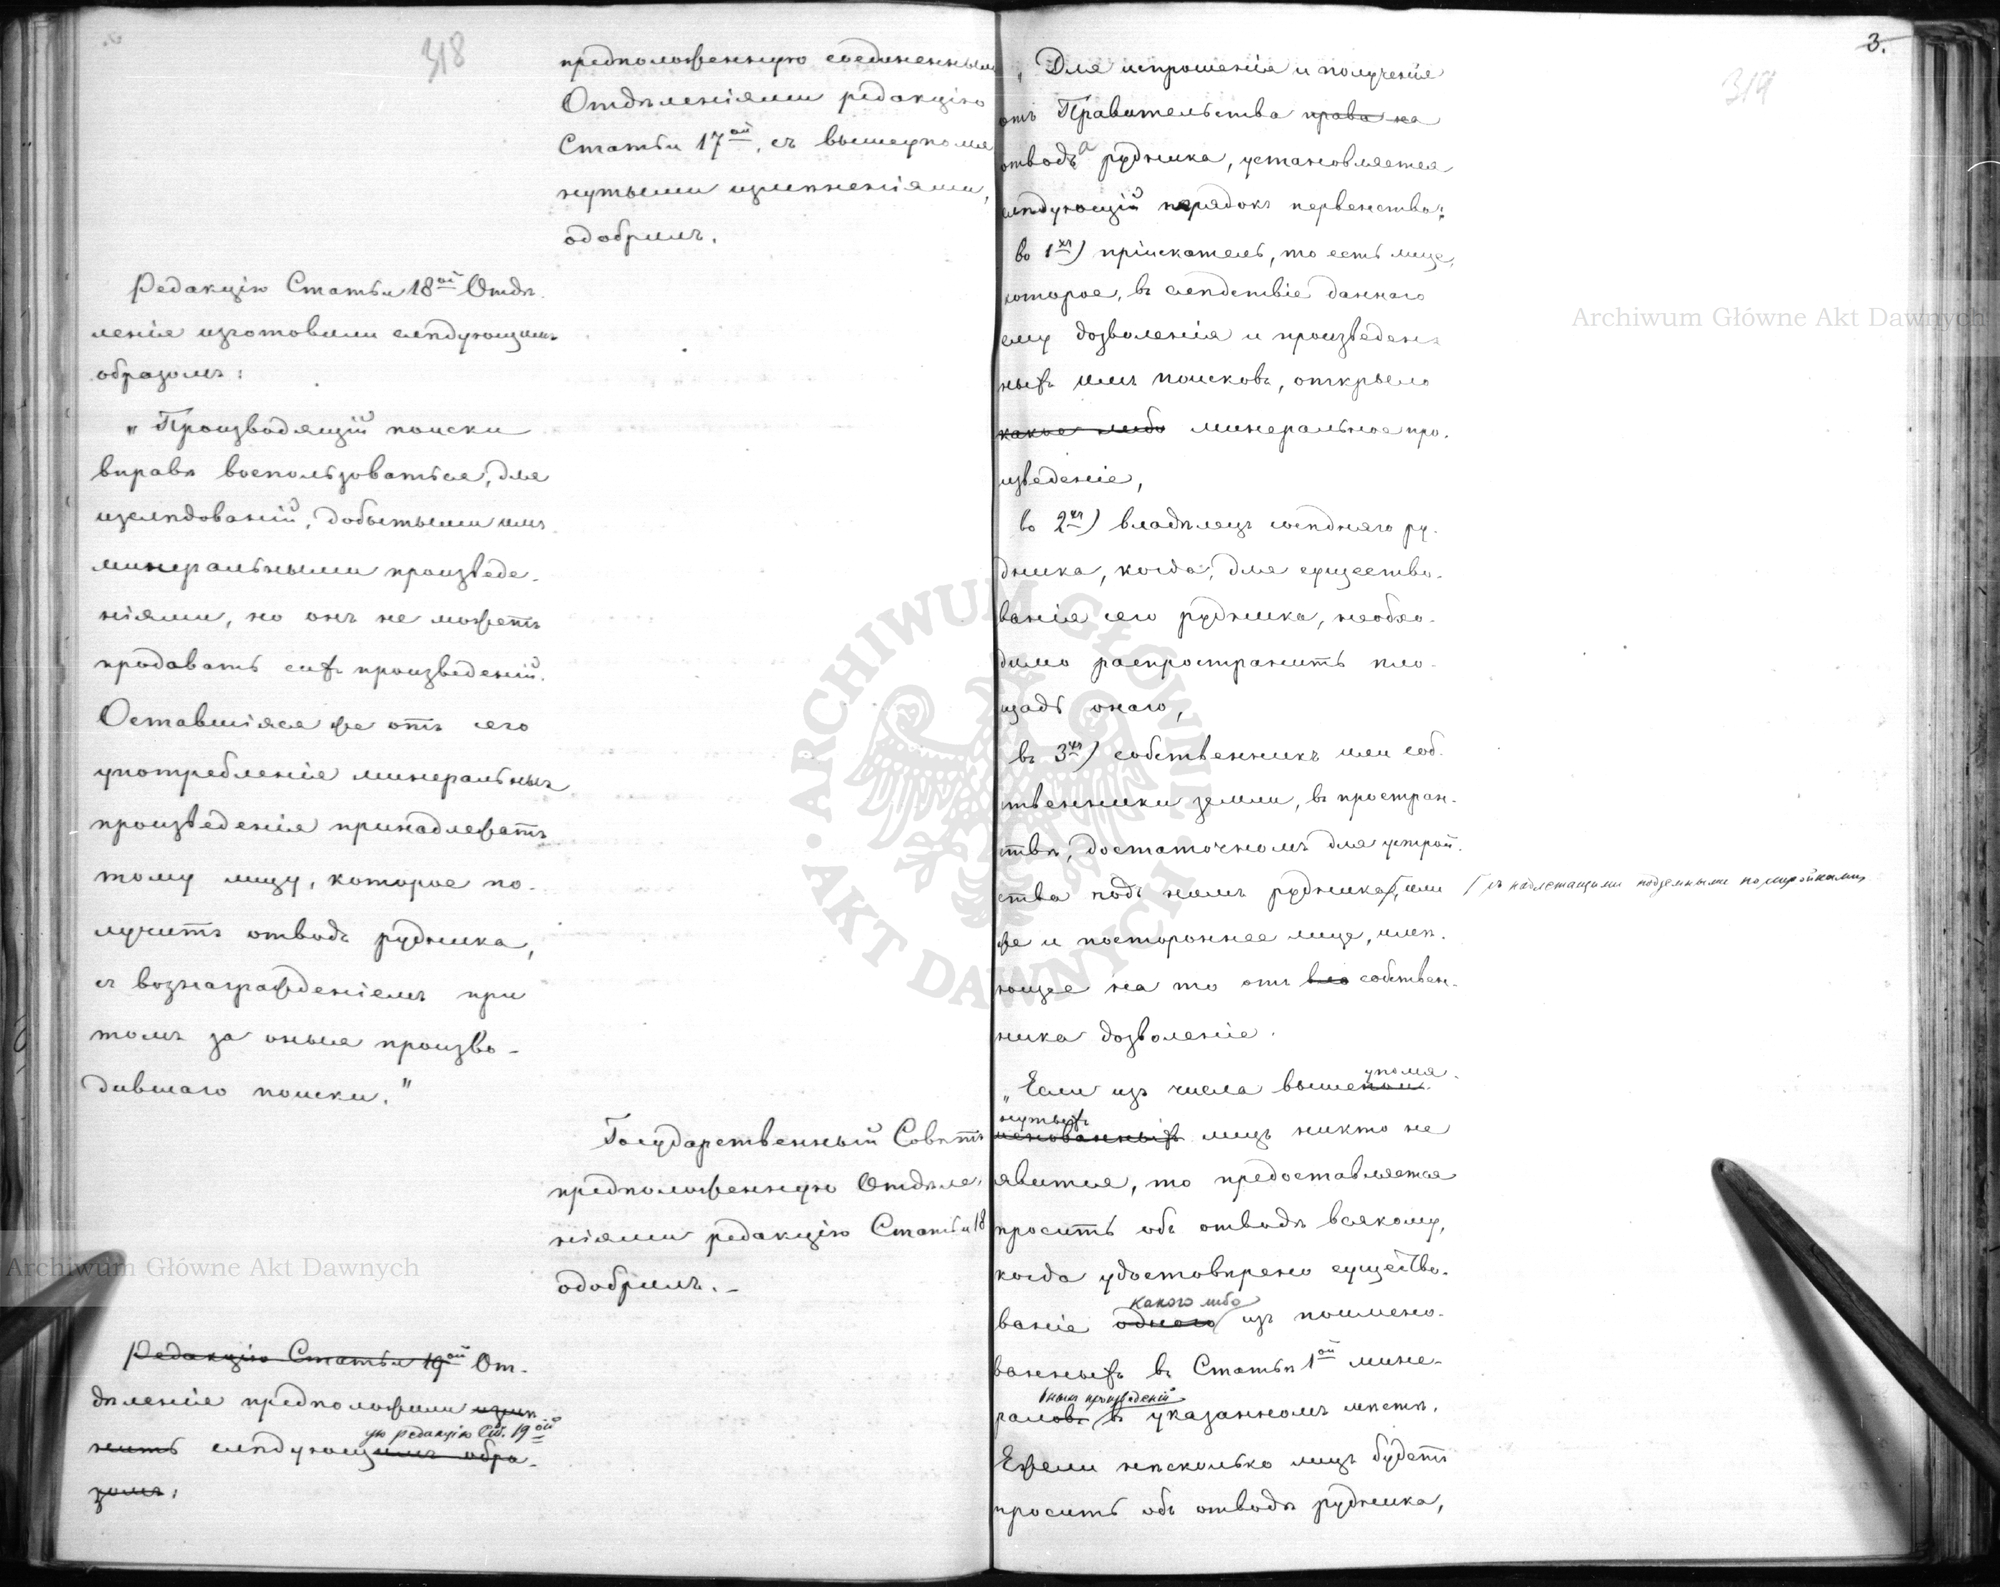 318
предположенную соединенными
Отдѣленіями редакцію
Статьи 17ой, съ вышеупомя
нутыми измѣненіями,
одобрилъ.
Редакцію Статьи 18ой Отдѣ-
ленія изготовили слѣдующимъ
образомъ:
„Производящій поиски
вправѣ воспользоваться, для
изслѣдованій, добытыми имъ
минеральными произведе-
ніями, но онъ не можетъ
продавать сихъ произведеній.
Оставшіяся же отъ его
употребленія минеральныя
произведенія принадлежатъ
тому лицу, которое по-
лучитъ отводъ рудника,
съ вознагражденіемъ при
томъ за оныя произво-
дившаго поиски."
Государственный Совѣтъ
предположенную Отдѣле-
ніями редакцію Статьи 18
одобрилъ.-
Редакцію Статьи 19ой От-
дѣленіе предположили измѣ
ую редакцію Ст. 19ой
нить слѣдующимъ обра-
зомъ:
3.
319
„Для испрошенія и полученія
отъ Правительства права на
отвода рудника, установляется
слѣдующій порядокъ первенства:
во 1хъ) пріискатель, то есть лице,
которое, въ слѣдствіе даннаго
ему дозволенія и произведен-
ныхъ имъ поисковъ, открыло
какое либо минеральное про-
изведеніе,
во 2хъ) владѣлецъ сосѣдняго ру-
дника, когда, для существо-
ванія его рудника, необхо-
димо распространить пло-
щадь онаго,
въ 3хъ) собственникъ или соб-
ственники земли, въ простран-
ствѣ, достаточномъ для устрой-
ства подъ нимъ рудника, или
съ надлежащими подземными постройками
же и постороннее лице, имѣ-
ющее на то отъ его собствен-
ника дозволеніе.
упомя-
„Если изъ числа вышепои-
нутыхъ
менованныхъ лицъ никто не
явится, то предоставляется
просить объ отводѣ всякому,
когда удостовѣрено существо-
какого либо
ваніе одного изъ поимено-
ванныхъ въ Статьѣ 1ой мине-
ныхъ произведеній
раловъ въ указанномъ мѣстѣ.
Ежели нѣсколько лицъ будетъ
просить объ отводѣ рудника,
Archiwum Główne Akt Dawnych
Archiwum Główne Akt Dawnych
ARCHIWUM GŁÓWNE AKT DAWNYCH